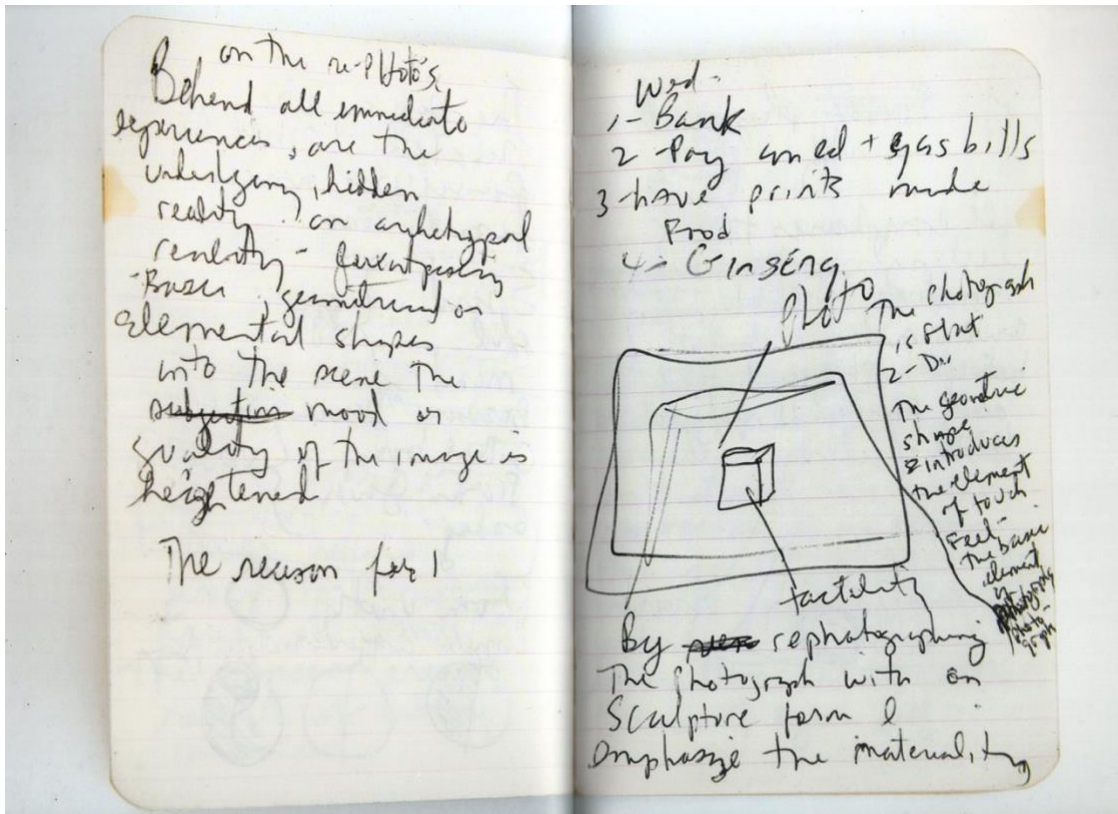 on the re-Photo's
Behend all immediate
experiences, are the
underlying, hidden
reality. an archetypal
reality - juxtaposing
Basic, geometrical or
elemental shapes
into the scene the
subjective mood or
quality of the image is
heightened
The reason for I
Wed-
1- Bank
2 - Pay con ed + gas bills
3 - have prints made
Food
4 - Ginseng
photo
The photograph
is flat
2-Dim
The geometric
shape
introduces
the element
of touch
Feel-
The basic
element
of
photograph
tactility
By rephotographing
The photograph with an
Sculpture form I
emphasize the materiality